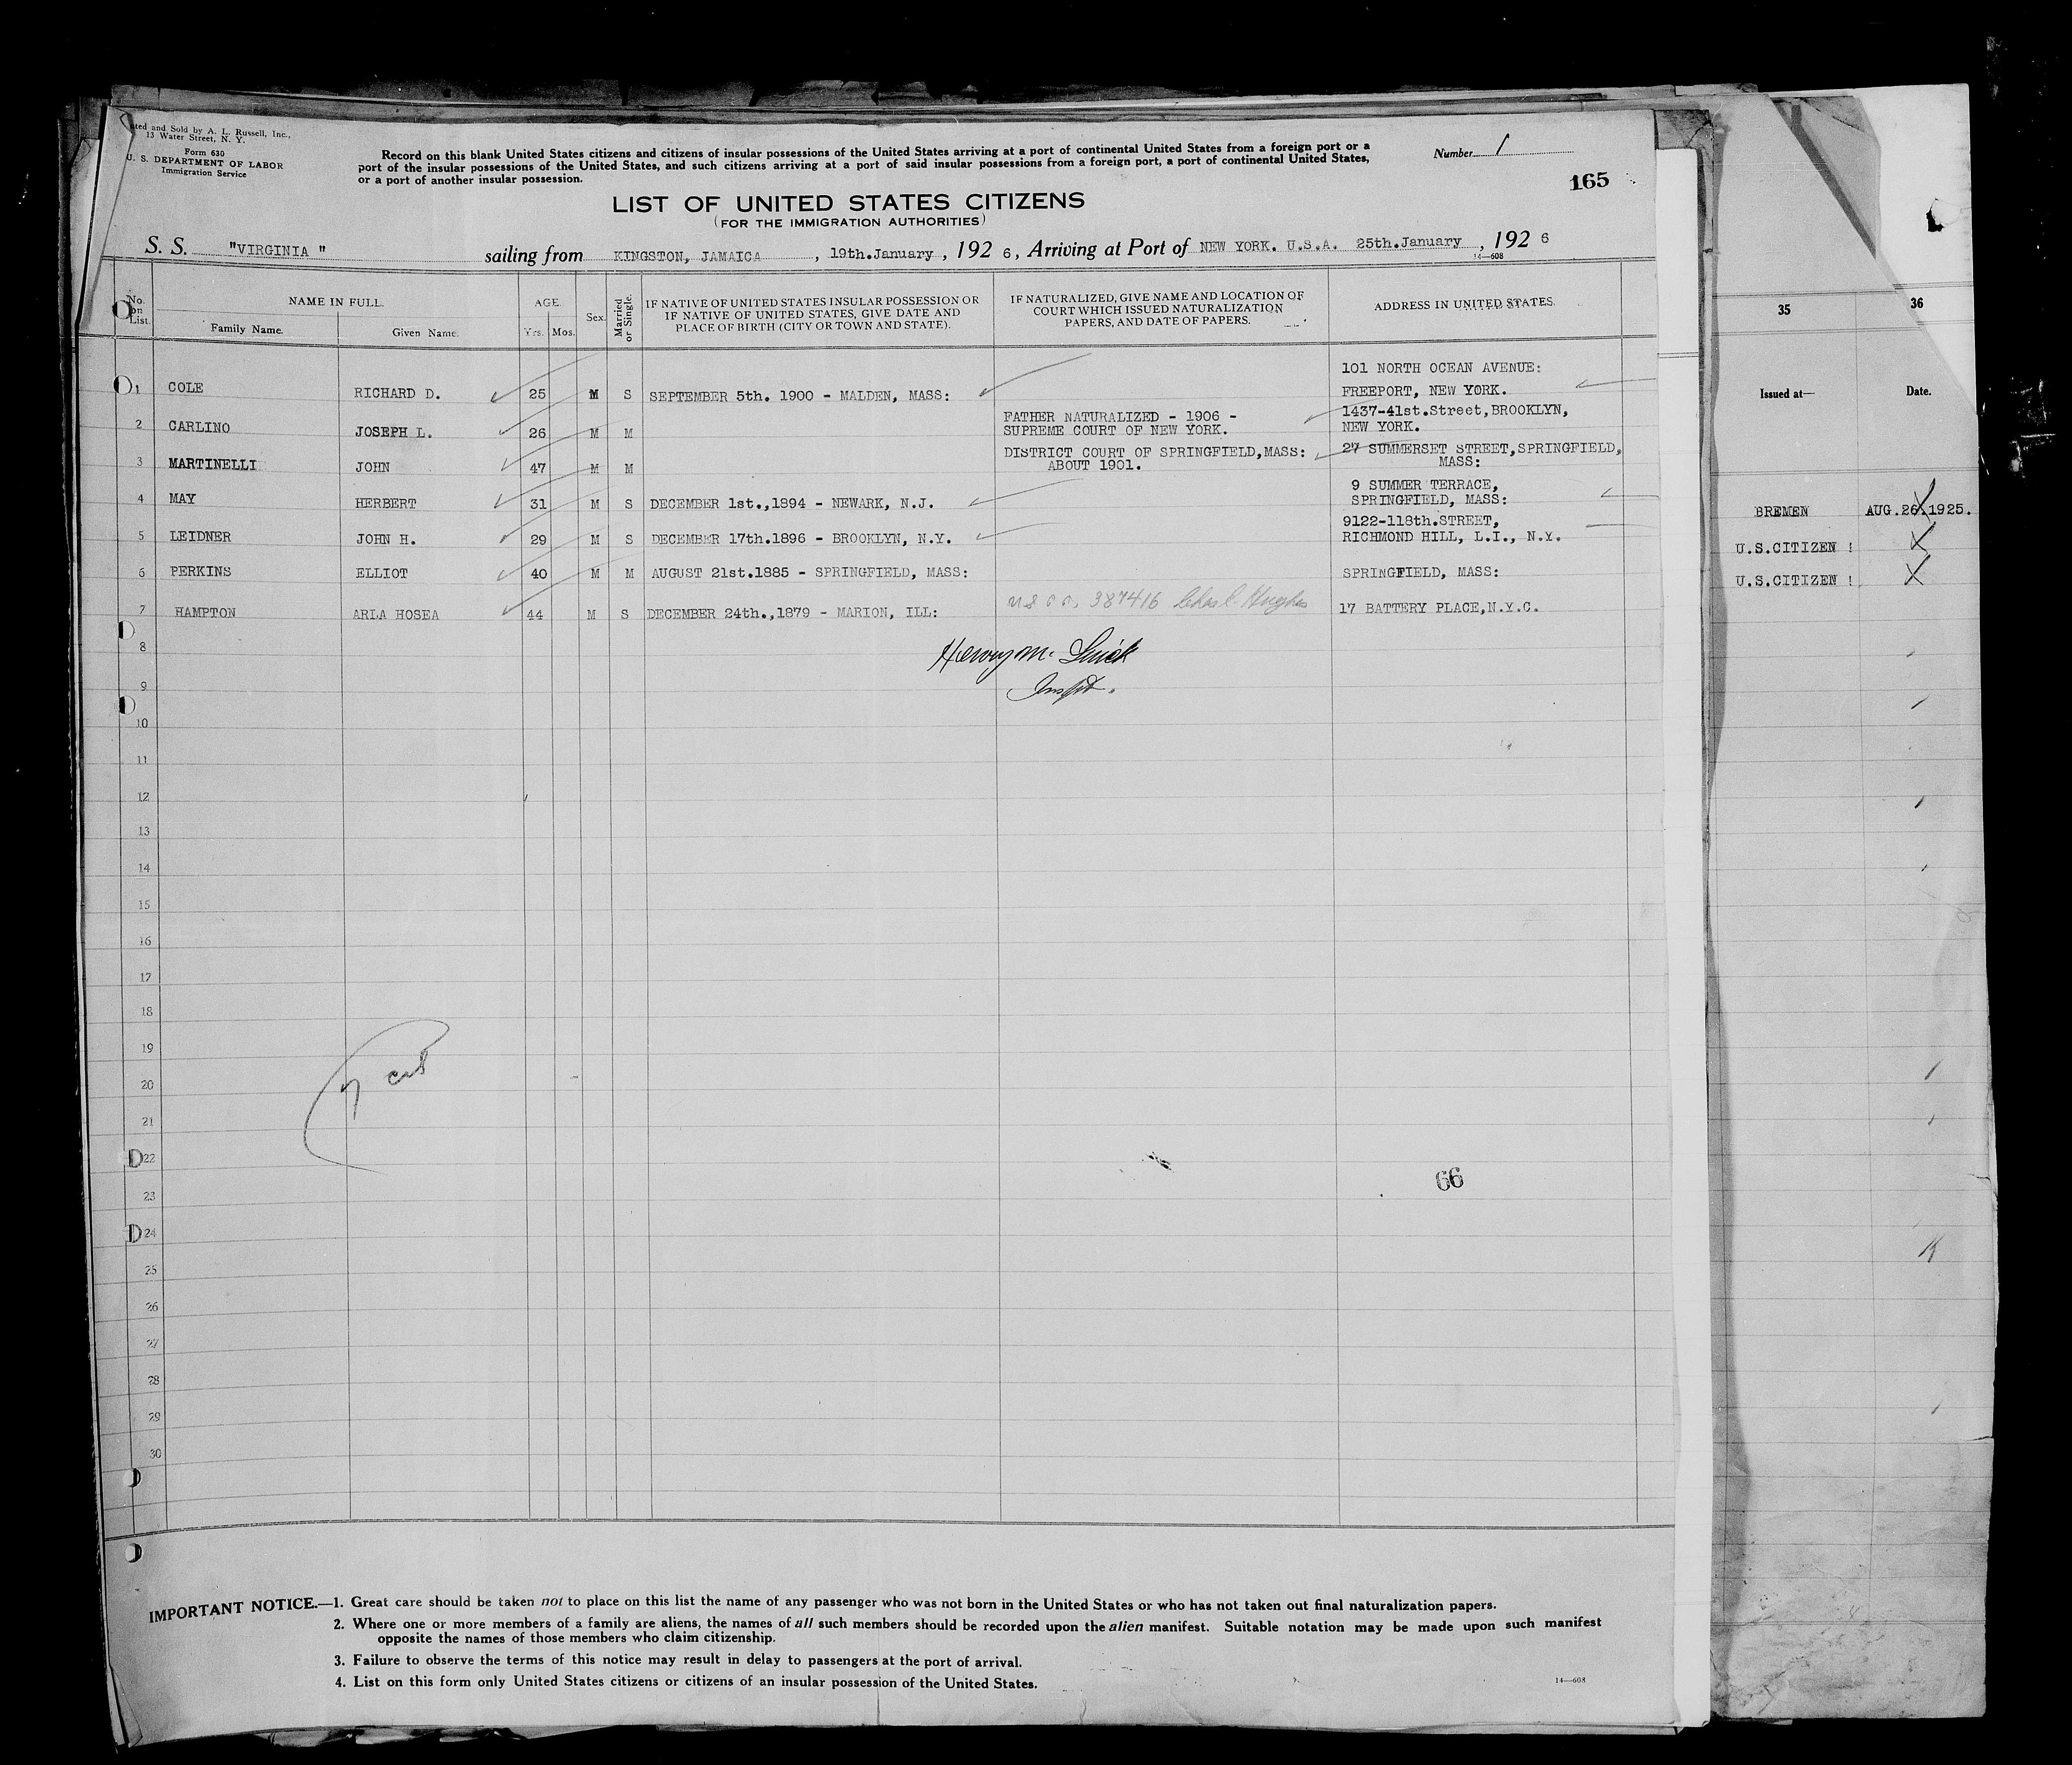 ted and Sold by A. L. Russell, Inc.,
13 Water Street, N. Y.
Form 630
U. S. DEPARTMENT OF LABOR
Immigration Service
Record on this blank United States citizens and citizens of insular possessions of the United States arriving at a port of continental United States from a foreign port or a
port of the insular possessions of the United States, and such citizens arriving at a port of said insular possessions from a foreign port, a port of continental United States,
or a port of another insular possession.
Number 1
165
LIST OF UNITED STATES CITIZENS
(FOR THE IMMIGRATION AUTHORITIES)
S. S. "VIRGINIA" sailing from KINGSTON, JAMAICA, 19th.January, 1926, Arriving at Port of NEW YORK. U.S.A. 25th.January, 1926
14—608
No. on List. NAME IN FULL. Family Name. Given Name. AGE. Yrs. Mos. Sex. Married or Single. IF NATIVE OF UNITED STATES INSULAR POSSESSION OR IF NATIVE OF UNITED STATES, GIVE DATE AND PLACE OF BIRTH (CITY OR TOWN AND STATE). IF NATURALIZED, GIVE NAME AND LOCATION OF COURT WHICH ISSUED NATURALIZATION PAPERS, AND DATE OF PAPERS. ADDRESS IN UNITED STATES.
1 COLE RICHARD D. 25 M S SEPTEMBER 5th. 1900 - MALDEN, MASS: 101 NORTH OCEAN AVENUE: FREEPORT, NEW YORK.
2 CARLINO JOSEPH L. 26 M M FATHER NATURALIZED - 1906 - SUPREME COURT OF NEW YORK. 1437-41st.Street,BROOKLYN, NEW YORK.
3 MARTINELLI JOHN 47 M M DISTRICT COURT OF SPRINGFIELD,MASS: ABOUT 1901. 27 SUMMERSET STREET,SPRINGFIELD, MASS:
4 MAY HERBERT 31 M S DECEMBER 1st.,1894 - NEWARK, N.J. 9 SUMMER TERRACE, SPRINGFIELD, MASS:
5 LEIDNER JOHN H. 29 M S DECEMBER 17th.1896 - BROOKLYN, N.Y. 9122-118th.STREET, RICHMOND HILL, L.I., N.Y.
6 PERKINS ELLIOT 40 M M AUGUST 21st.1885 - SPRINGFIELD, MASS: SPRINGFIELD, MASS:
7 HAMPTON ARLA HOSEA 44 M S DECEMBER 24th.,1879 - MARION, ILL: 387416 Chas. Hughes 17 BATTERY PLACE,N.Y.C.
8
9
10
11
12
13
14
15
16
17
18
19
20
21
22
23
24
25
26
27
28
29
30
7
66
IMPORTANT NOTICE.—1. Great care should be taken not to place on this list the name of any passenger who was not born in the United States or who has not taken out final naturalization papers.
2. Where one or more members of a family are aliens, the names of all such members should be recorded upon the alien manifest. Suitable notation may be made upon such manifest
opposite the names of those members who claim citizenship.
3. Failure to observe the terms of this notice may result in delay to passengers at the port of arrival.
4. List on this form only United States citizens or citizens of an insular possession of the United States.
14—608
35 36
Issued at— Date.
BREMEN AUG.26.1925.
U.S.CITIZEN !
U.S.CITIZEN !